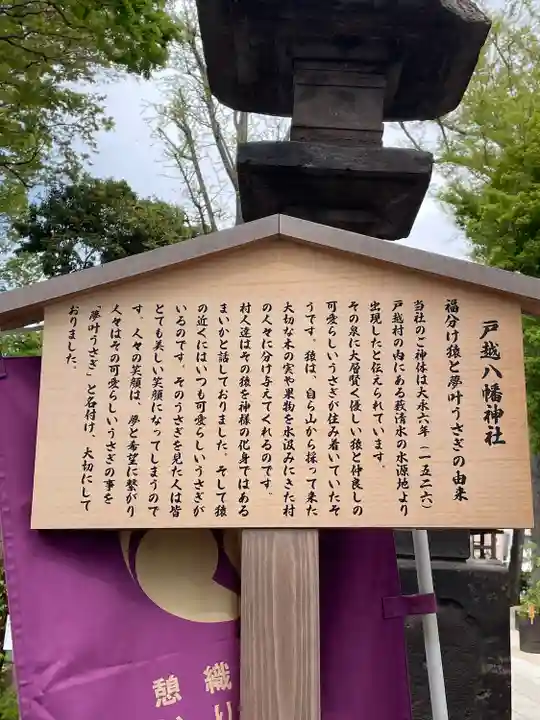 戸越八幡神社
福分け猿と夢叶うさぎの由来
当社のご神体は大永六年(一五二六)
戸越村の内にある藪清水の水源地より
出現したと伝えられています。
その泉に大層賢く優しい猿と仲良しの
可愛らしいうさぎが住み着いていたそ
うです。猿は、自ら山から採って来た
大切な木の実や果物を水汲みにきた村
の人々に分け与えてくれるのです。
村人達はその猿を神様の化身ではある
まいかと話しておりました。そして猿
の近くにはいつも可愛らしいうさぎが
いるのです。そのうさぎを見た人は皆
とても美しい笑顔になってしまうので
す。人々の笑顔は、夢と希望に繋がり
人々はその可愛らしいうさぎの事を
「夢叶うさぎ」と名付け、大切にして
おりました。
織
憩